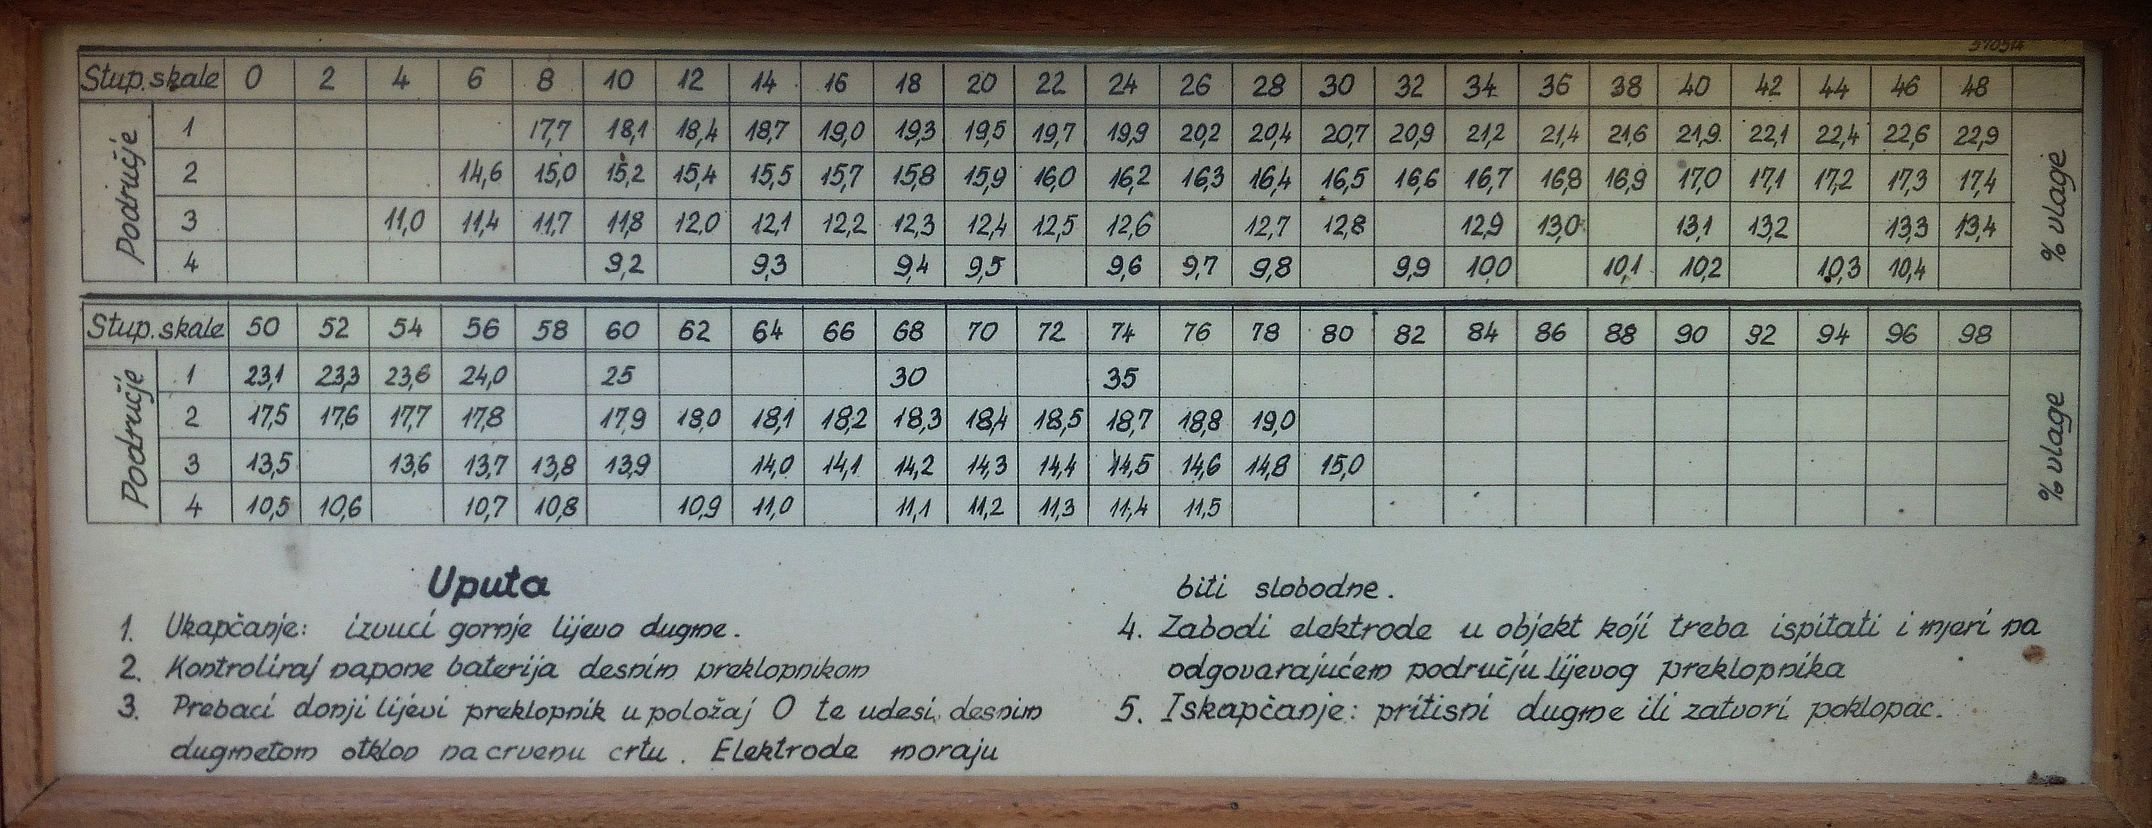 Stup. skale 0 2 4 6 8 10 12 14 16 18 20 22 24 26 28 30 32 34 36 38 40 42 44 46 48
Područje
1 17,7 18,1 18,4 18,7 19,0 19,3 19,5 19,7 19,9 20,2 20,4 20,7 20,9 21,2 21,4 21,6 21,9 22,1 22,4 22,6 22,9
2 14,6 15,0 15,2 15,4 15,5 15,7 15,8 15,9 16,0 16,2 16,3 16,4 16,5 16,6 16,7 16,8 16,9 17,0 17,1 17,2 17,3 17,4
3 11,0 11,4 11,7 11,8 12,0 12,1 12,2 12,3 12,4 12,5 12,6 12,7 12,8 12,9 13,0 13,1 13,2 13,3 13,4
4 9,2 9,3 9,4 9,5 9,6 9,7 9,8 9,9 10,0 10,1 10,2 10,3 10,4
% vlage
Stup. skale 50 52 54 56 58 60 62 64 66 68 70 72 74 76 78 80 82 84 86 88 90 92 94 96 98
Područje
1 23,1 23,3 23,6 24,0 25 30 35
2 17,5 17,6 17,7 17,8 17,9 18,0 18,1 18,2 18,3 18,4 18,5 18,7 18,8 19,0
3 13,5 13,6 13,7 13,8 13,9 14,0 14,1 14,2 14,3 14,4 14,5 14,6 14,8 15,0
4 10,5 10,6 10,7 10,8 10,9 11,0 11,1 11,2 11,3 11,4 11,5
% vlage
Uputa
1. Ukapčanje: izvuci gornje lijevo dugme.
2. Kontroliraj napone baterija desnim preklopnikom
3. Prebaci donji lijevi preklopnik u položaj O te udesi desnim
dugmetom otklon na crvenu crtu. Elektrode moraju
biti slobodne.
4. Zabodi elektrode u objekt koji treba ispitati i mjeri na
odgovarajućem području lijevog preklopnika
5. Iskapčanje: pritisni dugme ili zatvori poklopac.